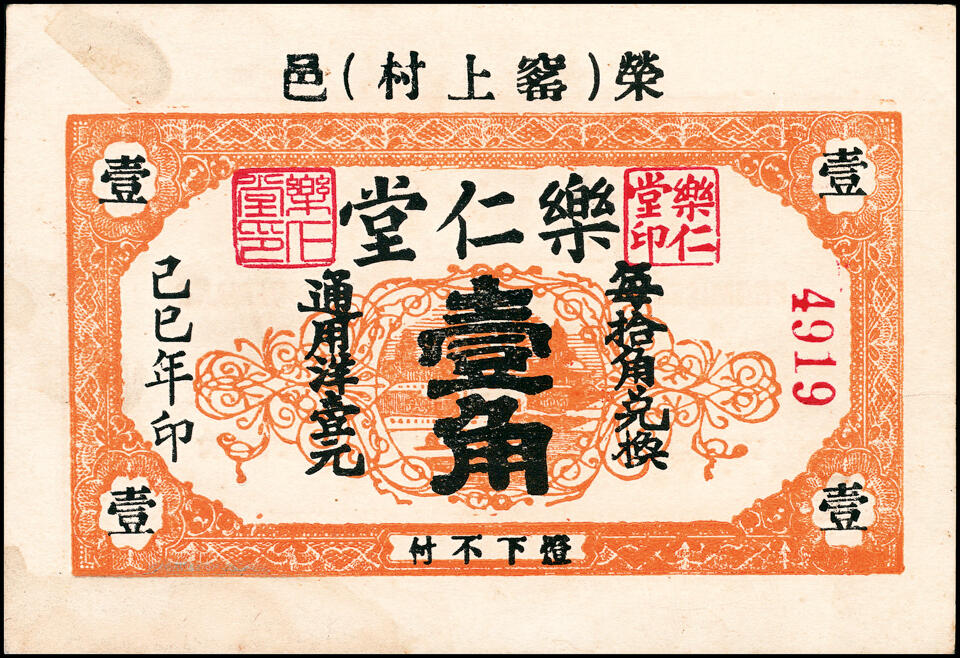 榮(窰上村)邑
壹
壹
樂仁堂印
樂仁堂
樂仁堂印
4919
每拾角兌換
壹角
通用洋壹元
己巳年印
壹
壹
燈下不付